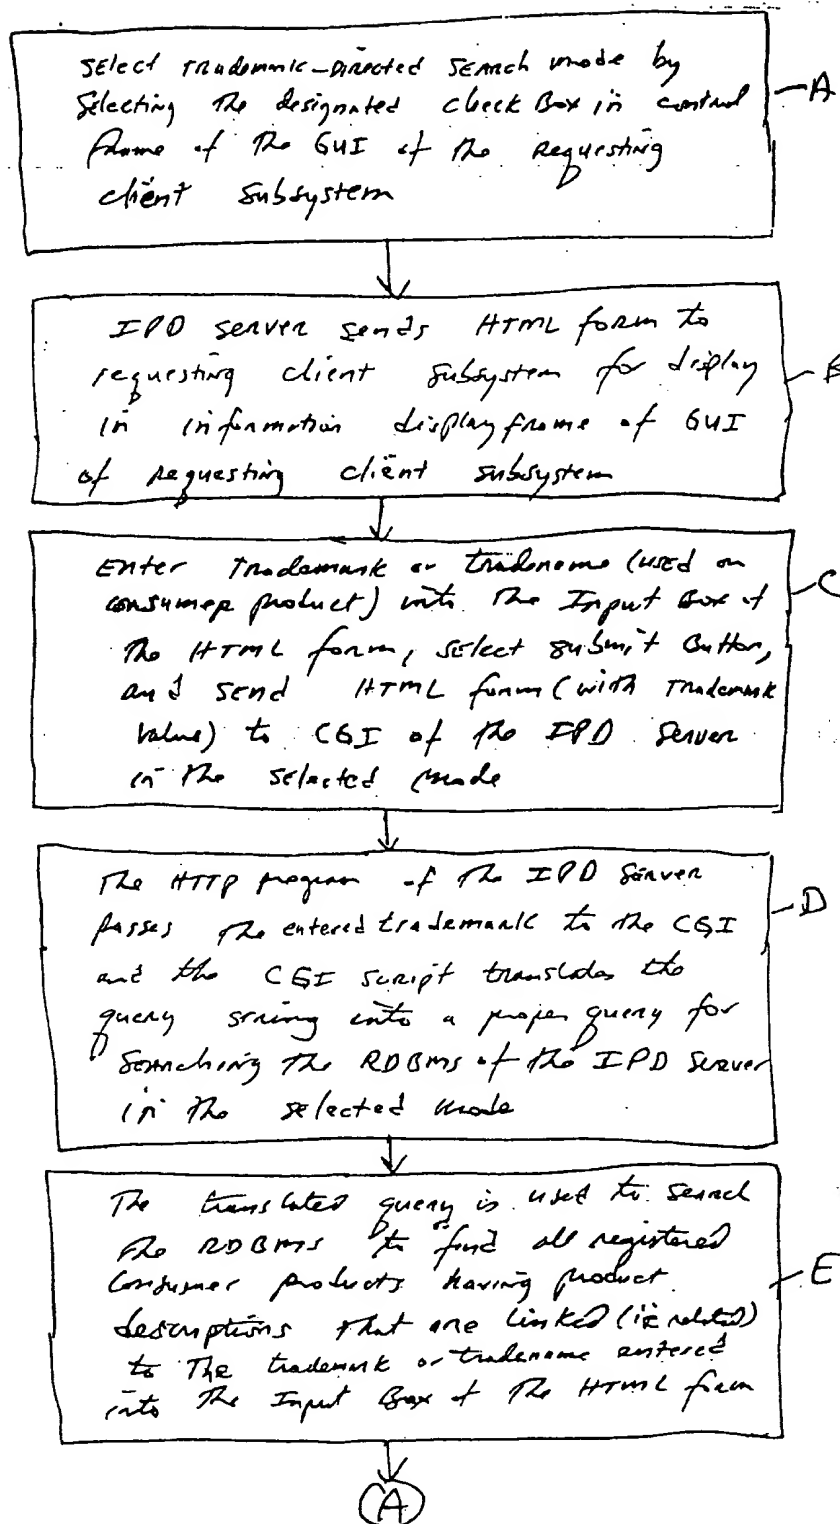 Select Trademark-Directed Search mode by
Selecting the designated check Box in control
frame of the GUI of the requesting
client subsystem
A
IPD server sends HTML form to
requesting client subsystem for display
in information display frame of GUI
of requesting client subsystem
B
Enter Trademark or tradename (used on
consumer product) into the Input Box of
the HTML form, select submit Button,
and send HTML form (with Trademark
value) to CGI of the IPD Server
in the selected mode
C
The HTTP program of the IPD Server
passes the entered trademark to the CGI
and the CGI script translates the
query string into a proper query for
Searching the RDBMS of the IPD Server
in the selected mode
D
The translated query is used to search
the RDBMS to find all registered
Consumer products having product
descriptions that are linked (ie related)
to The trademark or tradename entered
into the Input Box of The HTML form
E
A